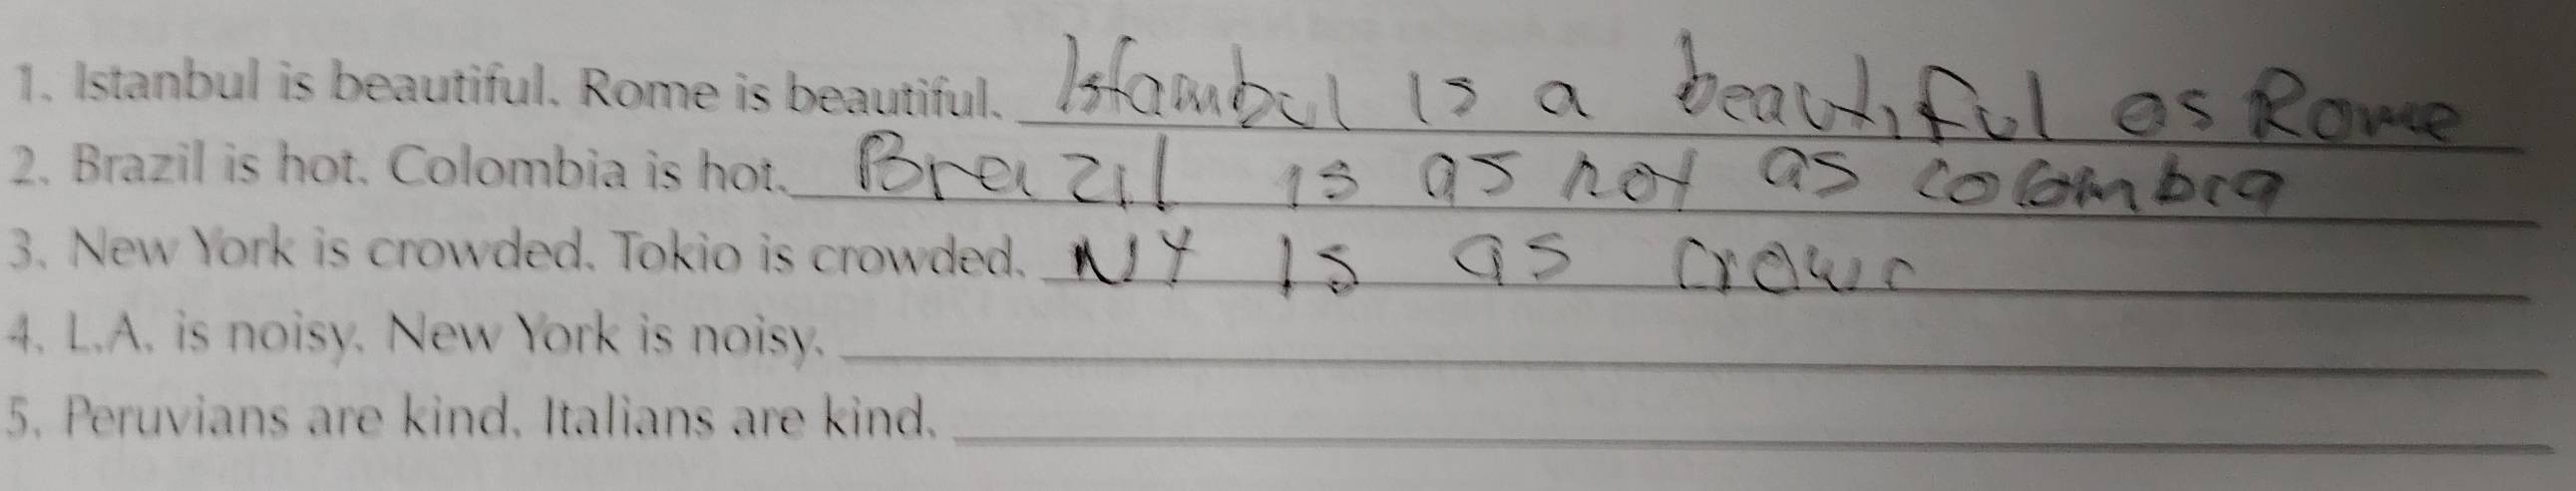 1. Istanbul is beautiful. Rome is beautiful. Istambul is a beautiful as Rome
2. Brazil is hot. Colombia is hot. Brazil is as hot as colombia
3. New York is crowded. Tokio is crowded. NY is as
4. L.A. is noisy. New York is noisy.
5. Peruvians are kind. Italians are kind.